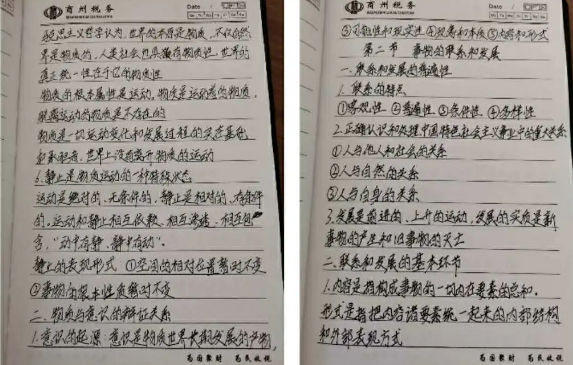 商州税务
Date
唯物主义者认为,世界的本原是物质,不仅自然
界是物质的,人类社会也具有物质性,世界的
真正统一性在于它的物质性
物质的根本属性是运动,物质是运动着的物质,
脱离运动的物质是不存在的
物质是一切运动变化和发展过程的实在基础
和承担者,世界上没有离开物质的运动
6.静止是物质运动的一种特殊状态
运动是绝对的、无条件的,静止是相对的、有条件
的,运动和静止相互依赖、相互渗透、相互包
含,"动中有静、静中有动".
静止的表现形式 ①空间的相对位置暂时不变
②事物的根本性质暂时不变
二、物质与意识的辩证关系
1.意识的起源:意识是物质世界长期发展的产物,
为国聚财 为民收税
商州税务
Date
③可能性和现实性 ④现象和本质 ⑤内容和形式
第二节 事物的联系和发展
一、联系和发展的普遍性
1.联系的特点
①客观性 ②普遍性 ③条件性 ④多样性
2.正确认识和处理中国特色社会主义事业中的重大关系
①人与他人和社会的关系
②人与自然的关系
③人与自身的关系
3.发展是前进的、上升的运动,发展的实质是新
事物的产生和旧事物的灭亡
二、联系和发展的基本环节
1.内容是指构成事物的一切内在要素的总和,
形式是指把内容诸要素统一起来的内部结构
和外部表现方式
为国聚财 为民收税